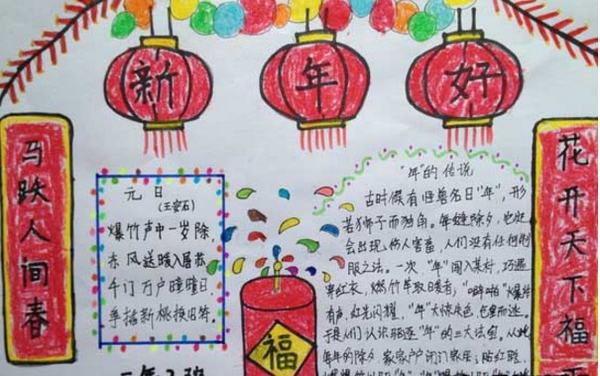 新年好
马跃人间春
花开天下福
元日
(王安石)
爆竹声中一岁除,
东风送暖入屠苏
千门万户曈曈日
争插新桃换旧符。
福
"年"的传说
古时候有怪兽名曰"年",形
若狮子而独角。每继除夕,它便
会出现,伤人害畜,人们没有任何制
服之法。一次,"年"闯入某村,巧遇
穿红衣,燃竹竿取暖者,"噼啪"爆炸
有声,红光闪耀,"年"大惊失色,
于是人们认识驱逐"年"的三大法宝。从此
每年的除夕 家家户户闭门 贴红联,
二年3班